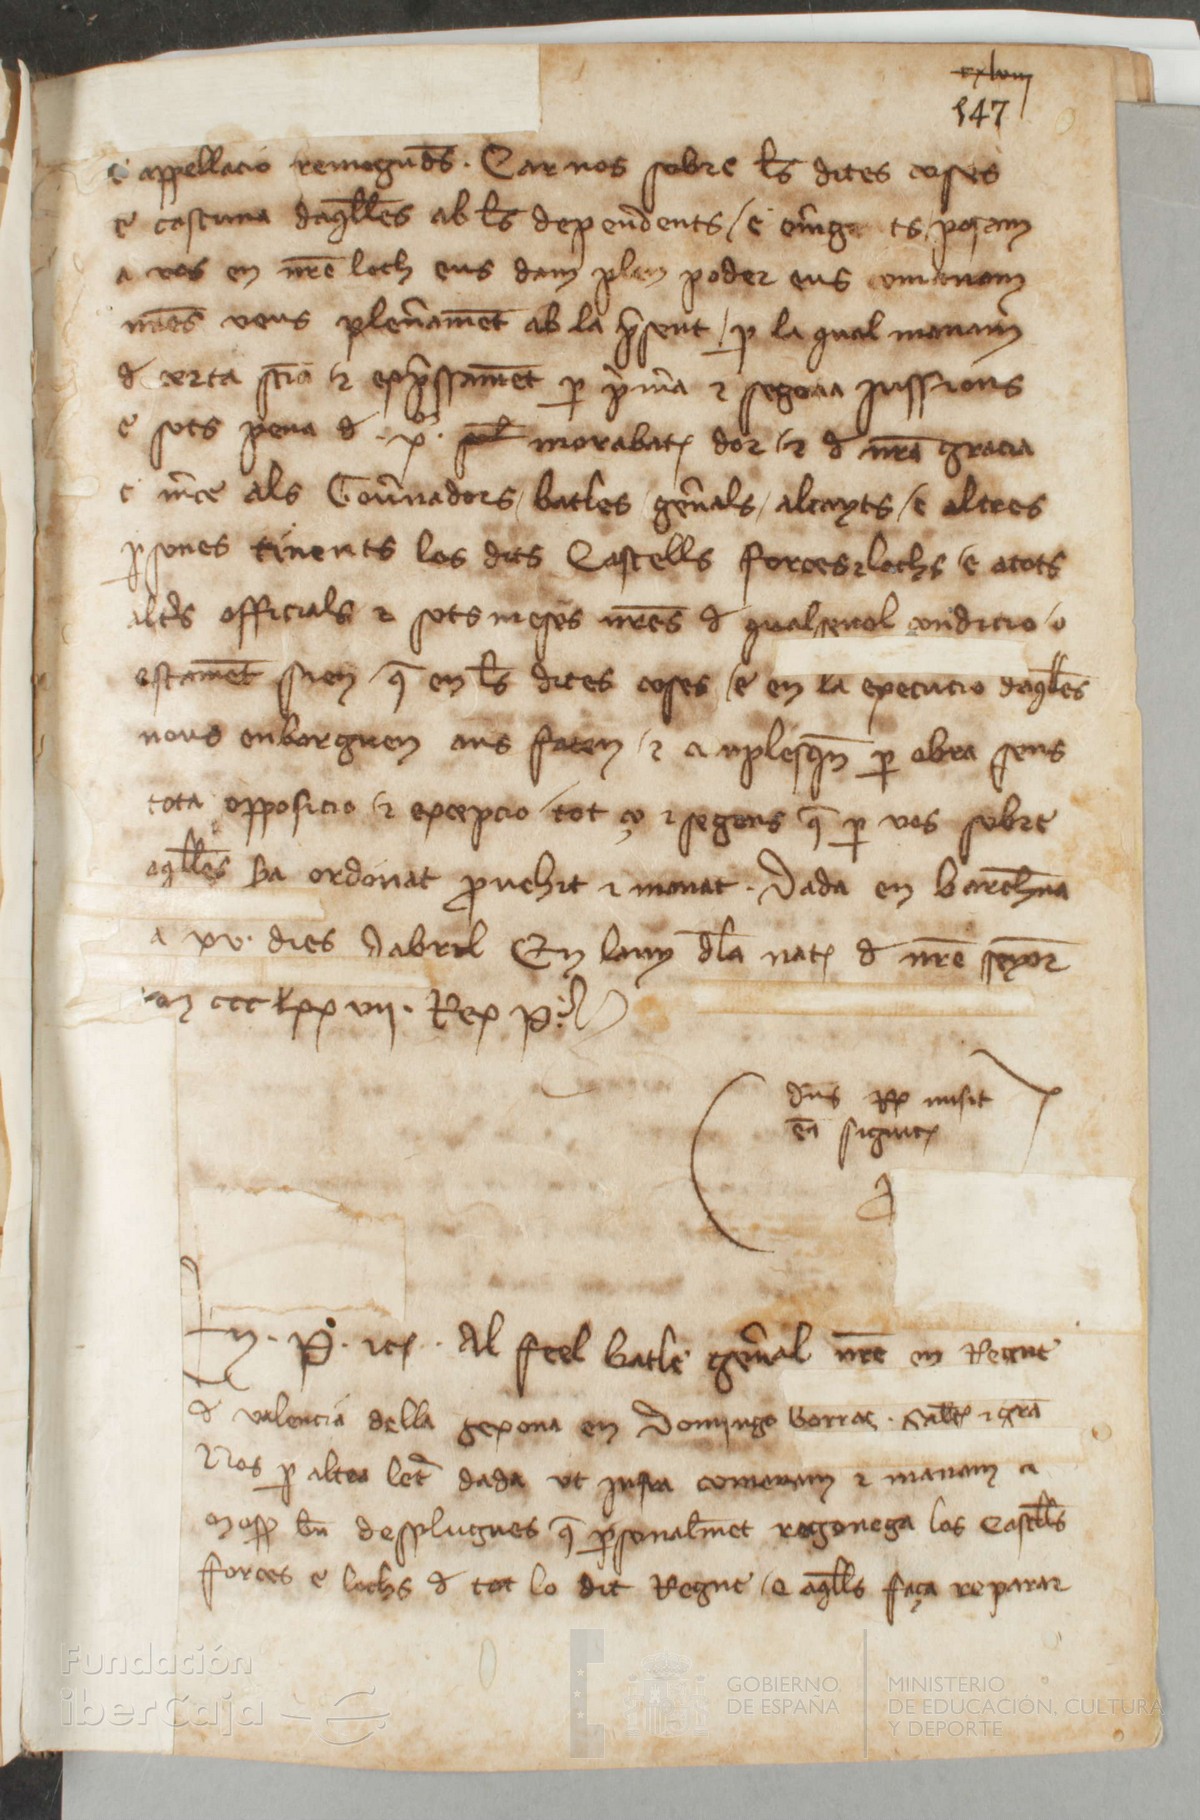 cxlviij
147
e appellacio remogudes. Car nos sobre les dites coses
e cascuna daqlles ab les dependents / e emga ts / posam
a vos en nre loch eus dam plen poder eus comanam
nres veus plenament ab la psent / p la qual manam
d certa scia e expssament p pmera e segona jussions
e sots pena d . x. morabatj dor / e d nra gracia
e mce als Govnadors / batles genals / alcayts / e altres
psones tinents los dits Castells forces e lochs / e a tots
altrs officials e sotsmeses nres d qualsevol condicio / o
estament sien / q en les dites coses / e en la execucio daqlles
nous enbarguen ans facen / e a nplesqn p obra sens
tota opposicio / e excepcio / tot ço e segons q p vos sobre
aqlles ha ordonat provehit e manat. Dada en barchna
a xv. dies dabril En lany dla natj d nre senyor
M ccc lxx vij. Rex P.
dns Rex misit
ea signatj
En. P. etcj. Al feel batle genal nre en Regne
d valencia della gexona en Domingo borraç. saltj e gra
Nos p altra letra dada ut infra comanam e manam a
mossen bn desplugues q psonalment regonega los castells
forces e lochs d tot lo dit Regne / e aqlls faça reparar
Fundación
iberCaja
GOBIERNO
DE ESPAÑA
MINISTERIO
DE EDUCACIÓN, CULTURA
Y DEPORTE